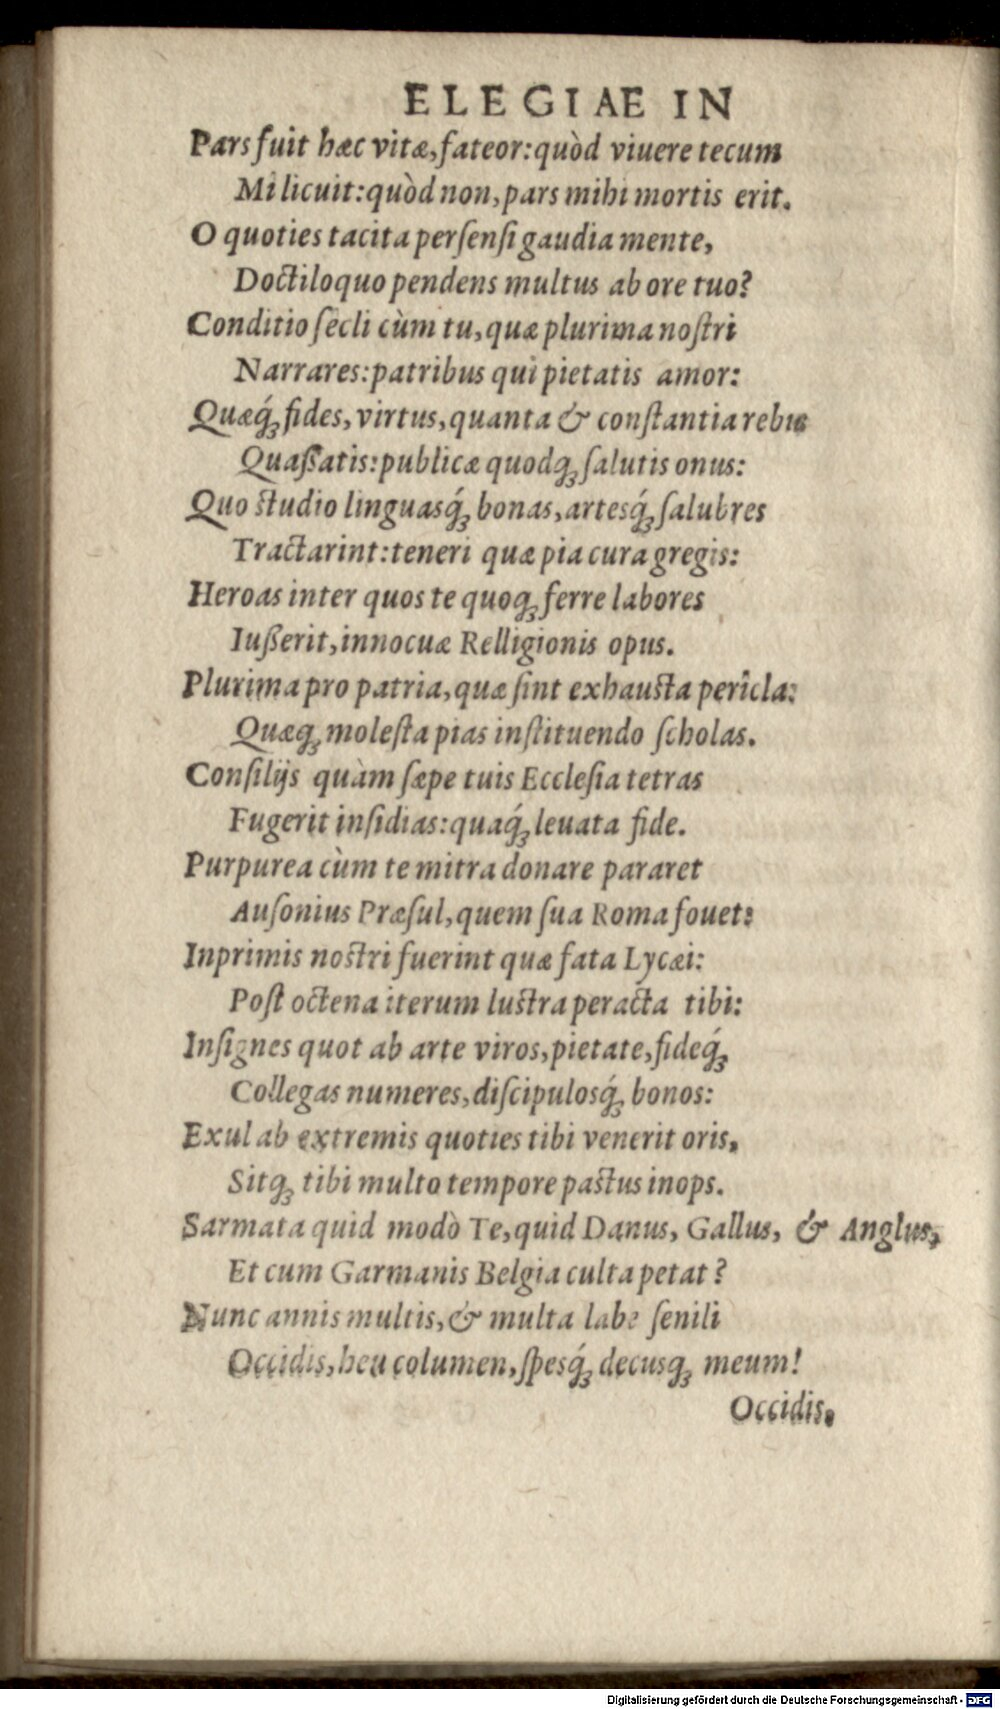 ELEGIAE IN
Pars fuit hæc vitæ, fateor: quòd viuere tecum
Mi licuit: quòd non, pars mihi mortis erit.
O quoties tacita persensi gaudia mente,
Doctiloquo pendens multus ab ore tuo?
Conditio secli cùm tu, quæ plurima nostri
Narrares: patribus qui pietatis amor:
Quæq́ꝫ fides, virtus, quanta & constantia rebus
Quaßatis: publicæ quodqꝫ salutis onus:
Quo studio linguasq́ꝫ bonas, artesq́ꝫ salubres
Tractarint: teneri quæ pia cura gregis:
Heroas inter quos te quoqꝫ ferre labores
Iußerit, innocuæ Relligionis opus.
Plurima pro patria, quæ sint exhausta pericla:
Quæqꝫ molesta pias instituendo scholas.
Consilijs quàm sæpe tuis Ecclesia tetras
Fugerit insidias: quaq́ꝫ leuata fide.
Purpurea cùm te mitra donare pararet
Ausonius Præsul, quem sua Roma fouet:
Inprimis nostri fuerint quæ fata Lycæi:
Post octena iterum lustra peracta tibi:
Insignes quot ab arte viros, pietate, fideq́ꝫ
Collegas numeres, discipulosq́ꝫ bonos:
Exul ab extremis quoties tibi venerit oris,
Sitqꝫ tibi multo tempore pastus inops.
Sarmata quid modò Te, quid Danus, Gallus, & Anglus,
Et cum Garmanis Belgia culta petat?
Nunc annis multis, & multa labe senili
Occidis, heu columen, spesq́ꝫ decusqꝫ meum!
Occidis.
Digitalisierung gefördert durch die Deutsche Forschungsgemeinschaft - DFG